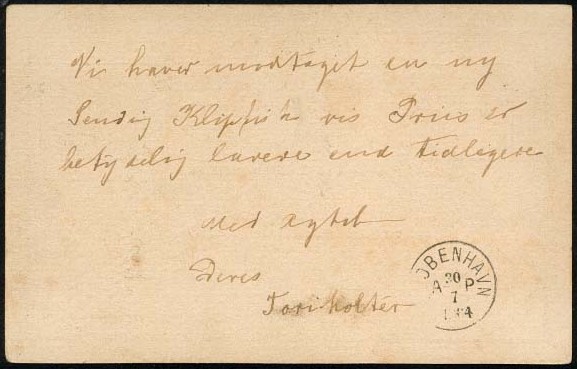 Vi haver modtaget en ny
Sendig Klipfisk vis Priis er
betydelig lavere end tidlegere
Med agtelse
Deres
KØBENHAVN
30
7